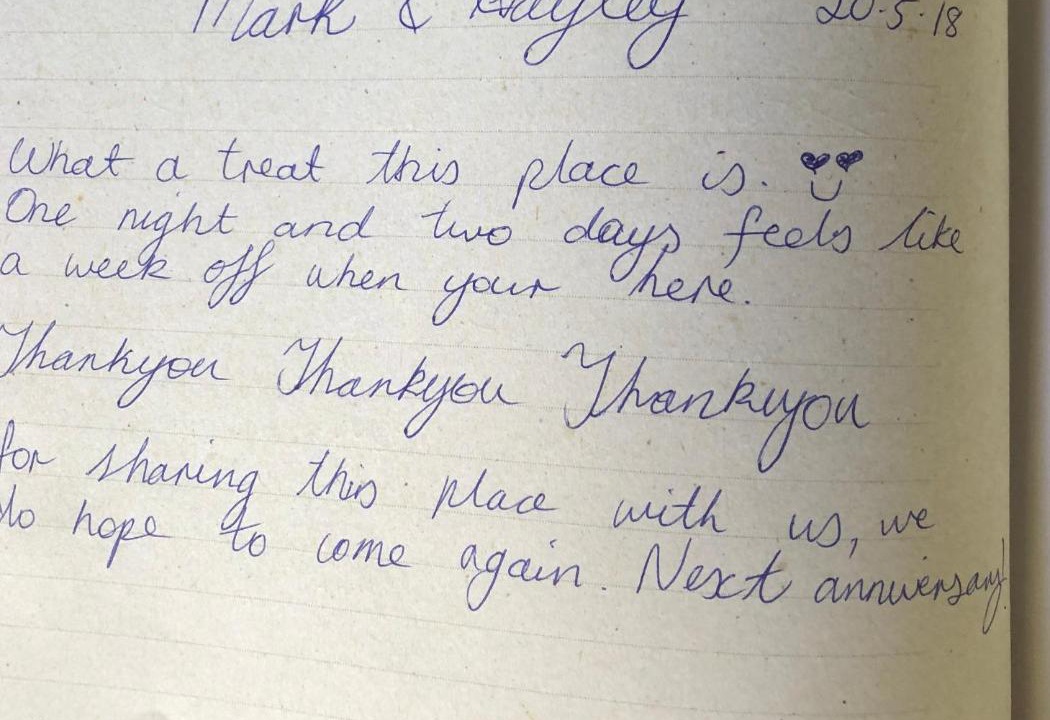 Mark & Hayley 20.5.18
What a treat this place is. 😍
One night and two days feels like
a week off when your here.
Thankyou Thankyou Thankyou
for sharing this place with us, we
do hope to come again. Next anniversary!